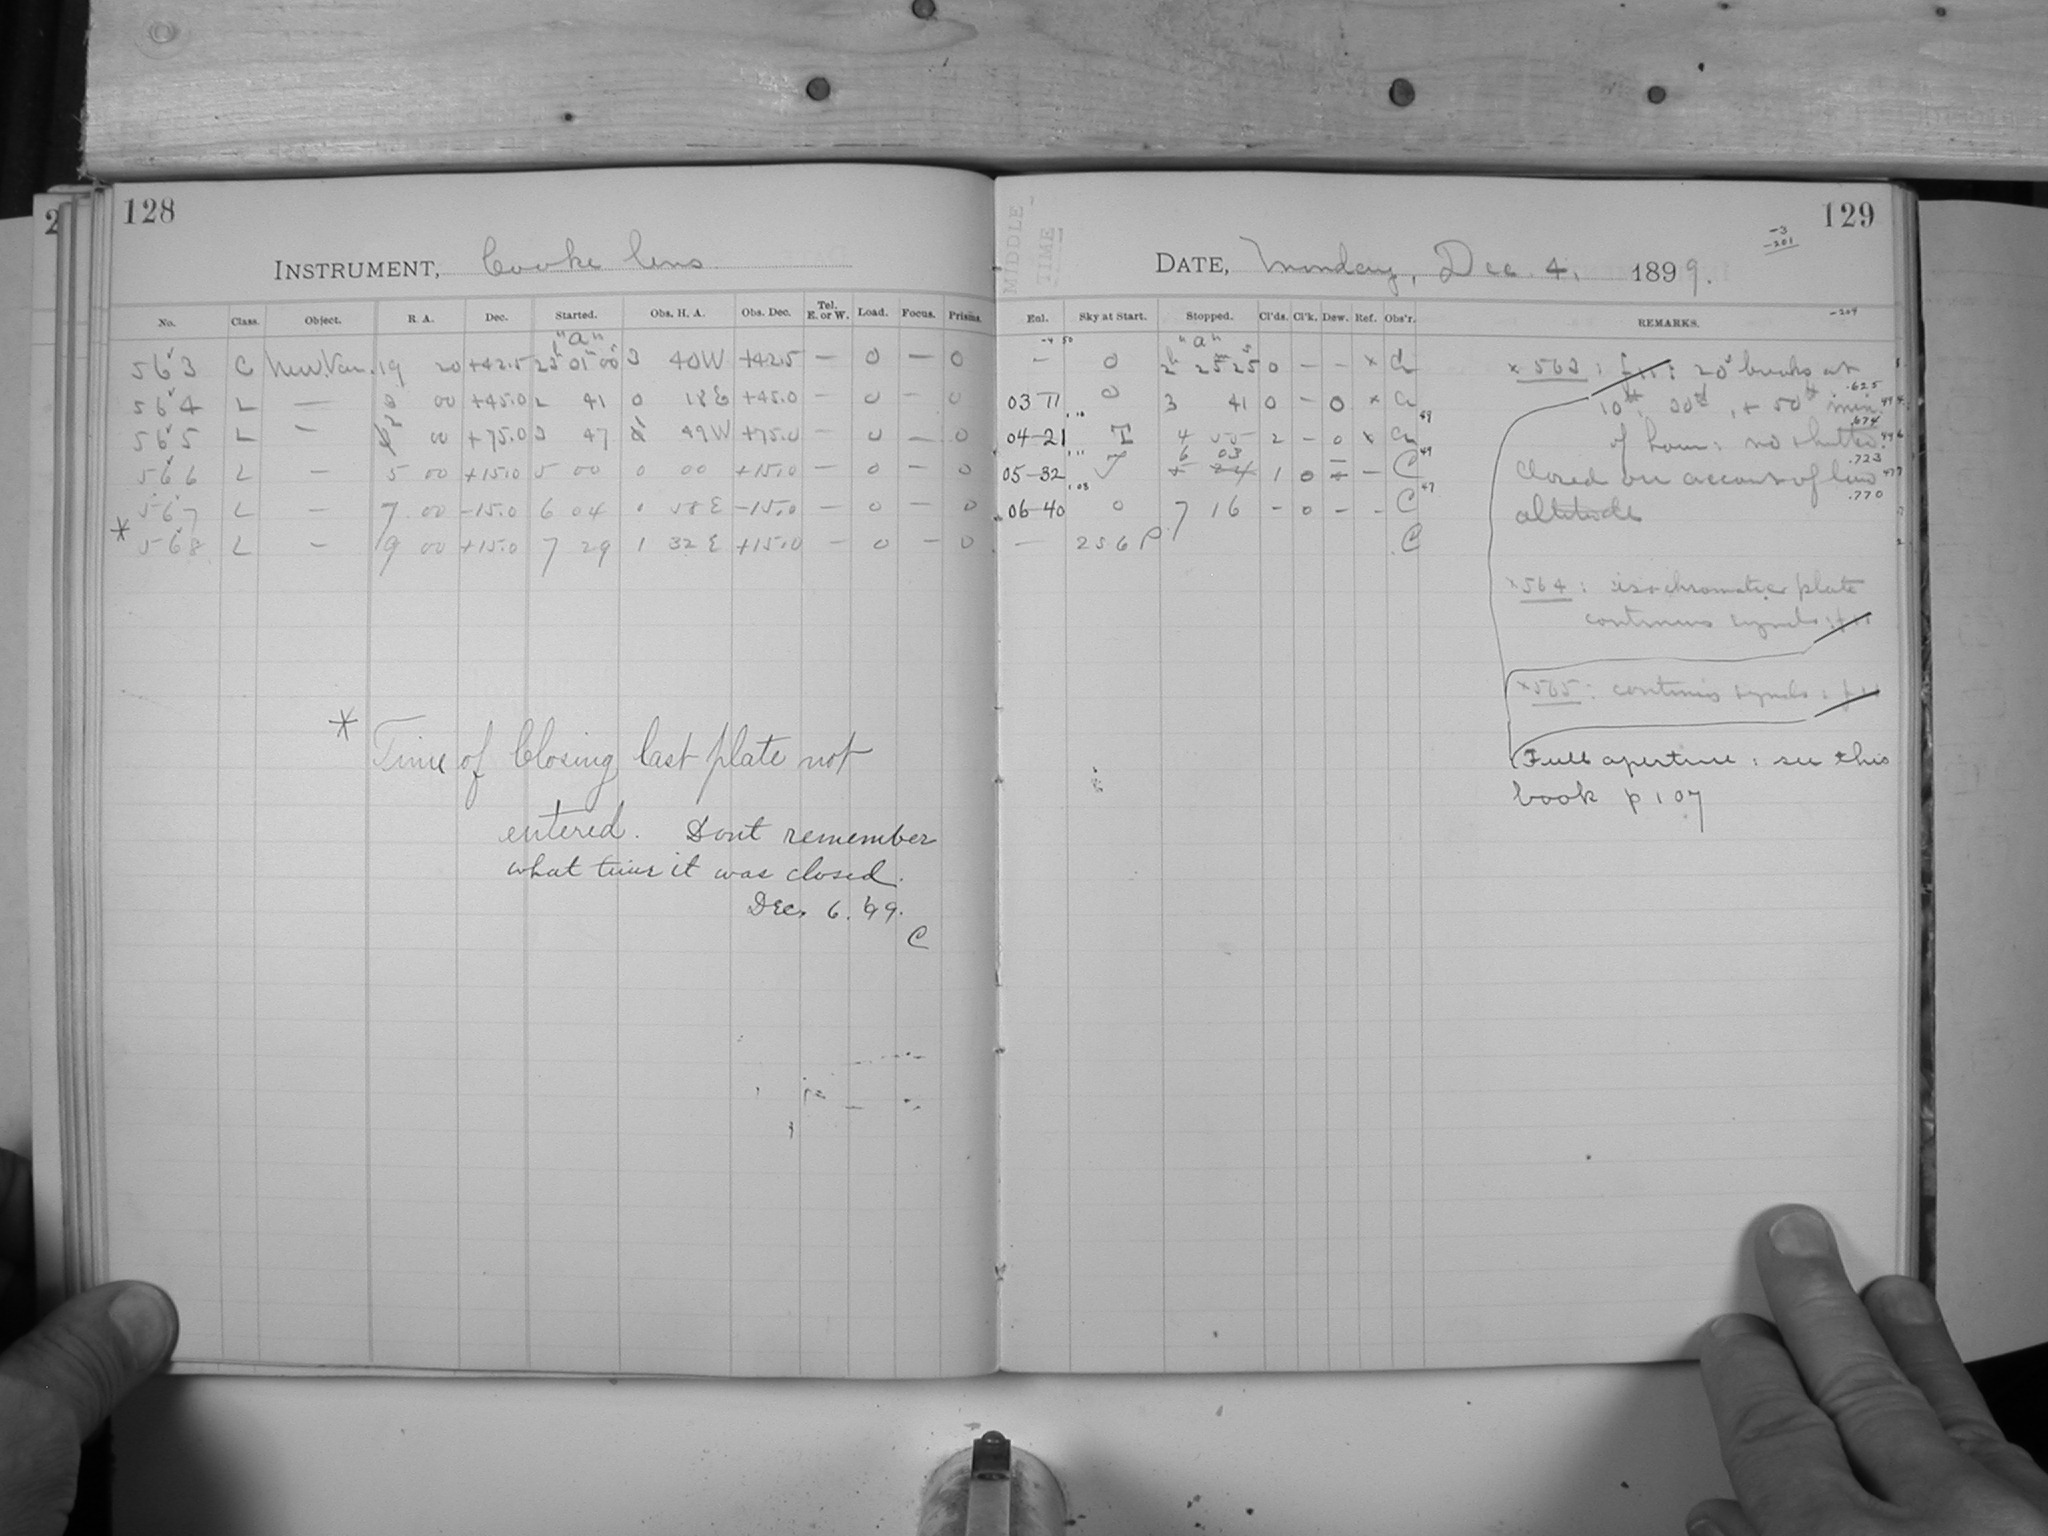 128
INSTRUMENT, Cooke lens
No. Class. Object. R. A. Dec. Started. Obs. H. A. Obs. Dec. Tel. E. or W. Load. Focus. Prisms.
"a"
563 C New Var. 19 20 +42.5 23h 01m 00s 3 40 W +42.5 — 0 — 0
564 L — 3 00 +45.0 2 41 0 18 E +45.0 — 0 — 0
565 L — 2 00 +75.0 3 47 1 49 W +75.0 — 0 — 0
566 L — 5 00 +15.0 5 00 0 00 +15.0 — 0 — 0
567 L — 7 00 -15.0 6 04 0 58 E -15.0 — 0 — 0
* 568 L — 9 00 +15.0 7 29 1 32 E +15.0 — 0 — 0
* Time of Closing last plate not
entered. Dont remember
what time it was closed.
Dec. 6. '99.
C
129
MIDDLE-
TIME
DATE, Monday, Dec. 4, 1899.
-3
-201
Enl. Sky at Start. Stopped. Cl'ds. Cl'k. Dew. Ref. Obs'r. REMARKS.
-204
"a"
— 0 2h 25m 25s 0 — — x
03-11 0 3 41 0 — 0 x
04-21 T 4 55 2 — 0 x
6 03
05-32 T 1 0 — C
06-40 0 7 16 - 0 - - C
— 256 P C
x 563 : f11 : 20s breaks at
10th, 30th, + 50th min.
of hour : no shutter
closed on account of low
altitude
.625
.674
.723
.770
x 564 : isochromatic plate
continuous synch : f11
x 565 : continuous synch : f11
Full aperture : see this
book p 107